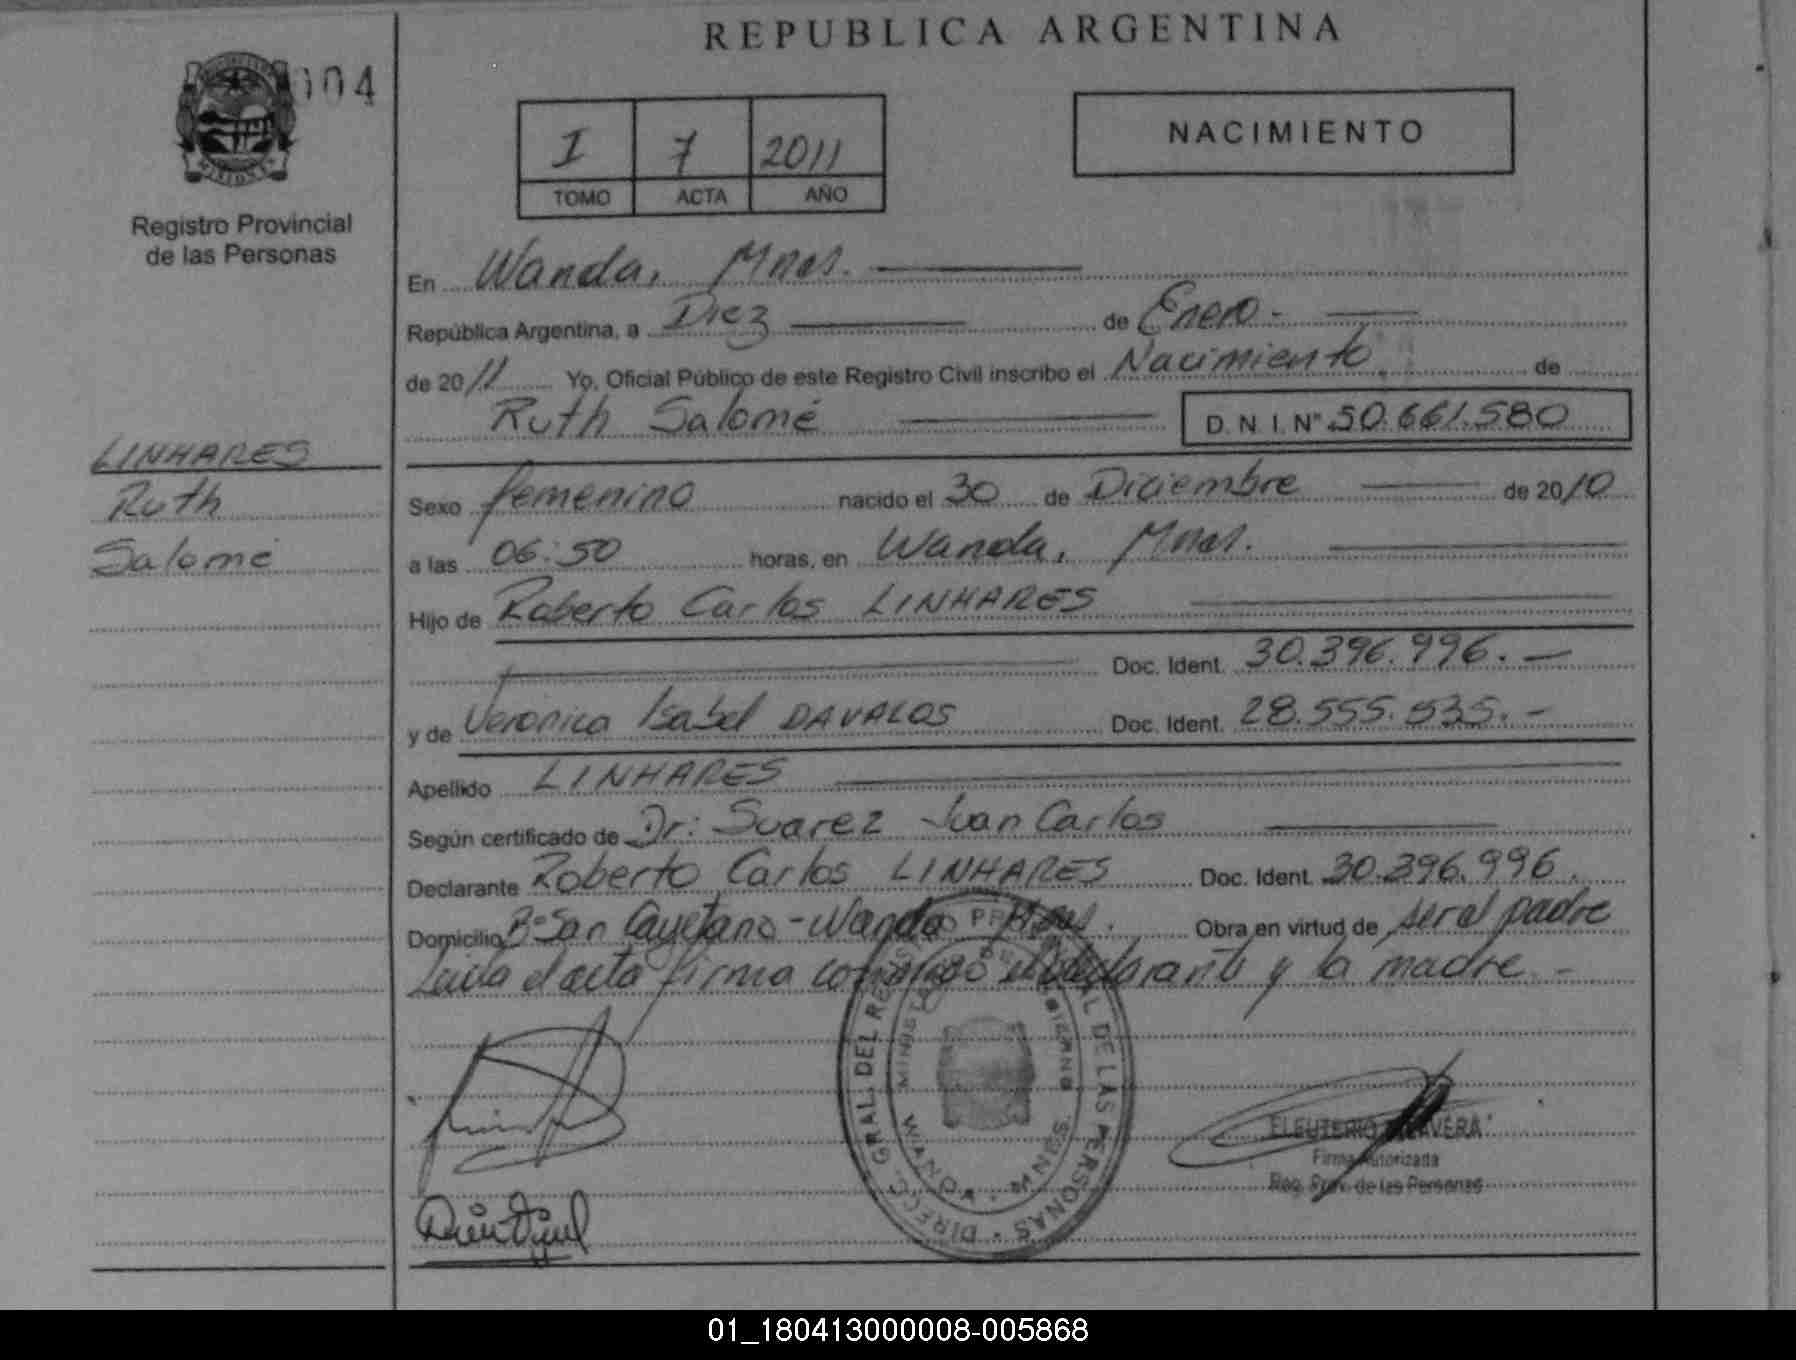 REPUBLICA ARGENTINA
004
MISIONES
Registro Provincial
de las Personas
I 7 2011
TOMO ACTA AÑO
NACIMIENTO
En Wanda, Mnes.
República Argentina, a Diez de Enero.-
de 2011 Yo, Oficial Público de este Registro Civil inscribo el Nacimiento de
Ruth Salomé D. N. I. Nº 50.661.580
LINHARES
Ruth
Salomé
Sexo femenino nacido el 30 de Diciembre de 2010
a las 06:50 horas, en Wanda, Mnes.
Hijo de Roberto Carlos LINHARES
Doc. Ident. 30.396.996.-
y de Veronica Isabel DAVALOS Doc. Ident. 28.555.535.-
Apellido LINHARES
Según certificado de Dr: Suarez Juan Carlos
Declarante Roberto Carlos LINHARES Doc. Ident. 30.396.996.
Domicilio Bº San Cayetano - Wanda Mnes. Obra en virtud de ser el padre
Leida el acta firma conmigo el declarante y la madre.-
DIREC. GRAL. DEL REG. PROVINCIAL DE LAS PERSONAS
MINISTERIO DE GOBIERNO
WANDA - MNES
ELEUTERIO TALAVERA
Firma Autorizada
Reg. Prov. de las Personas
01_180413000008-005868